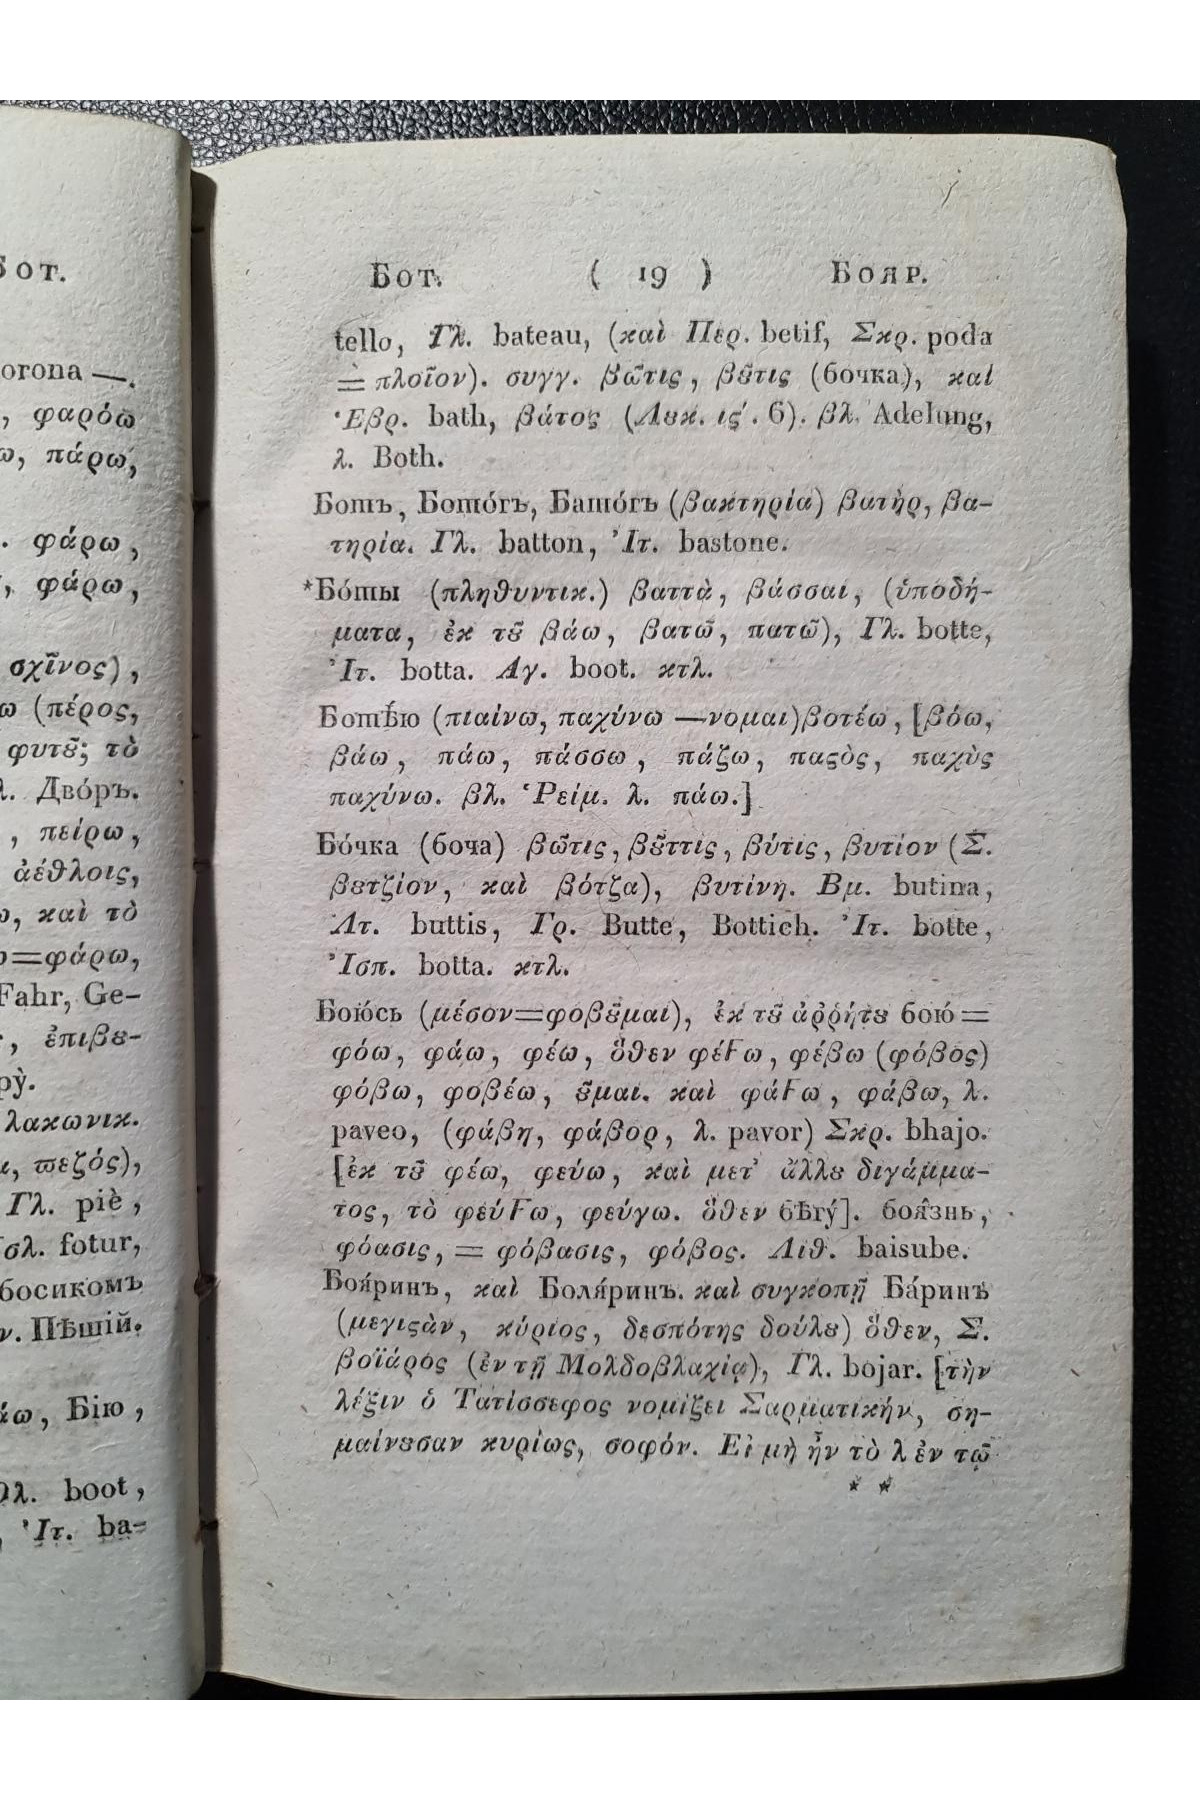 Бот.
orona —.
, φαρόω
ω, πάρω,
. φάρω,
, φάρω,
σχῖνος),
ω (πέρος,
φυτȣ͂; τὸ
λ. Дво́ръ.
, πείρω,
ἀέθλοις,
ω, καὶ τὸ
=φάρω,
Fahr, Ge-
, ἐπιβȣ-
ρỳ.
λακωνικ.
, ϖεζός),
Γλ. piè,
σλ. fotur,
босикомъ
ν. Пѣшій.
άω, Бію,
λ. boot,
, Ἰτ. ba-
Бот. ( 19 ) Бояр.
tello, Γλ. bateau, (καὶ Περ. betif, Σκρ. poda
= πλοῖον). συγγ. βῶτις, βȣ͂τις (бочка), καὶ
Ἑβρ. bath, βάτος (Λȣκ. ις΄. 6). βλ. Adelung,
λ. Both.
Ботъ, Бото́гъ, Бато́гъ (βακτηρία) βατὴρ, βα-
τηρία. Γλ. batton, Ἰτ. bastone.
*Бо́ты (πληθυντικ.) βαττὰ, βάσσαι, (ὑποδή-
ματα, ἐκ τȣ͂ βάω, βατῶ, πατῶ), Γλ. botte,
Ἰτ. botta. Αγ. boot. κτλ.
Ботѣ́ю (πιαίνω, παχύνω —νομαι) βοτέω, [βόω,
βάω, πάω, πάσσω, πάζω, παϛὸς, παχὺς
παχύνω. βλ. Ῥείμ. λ. πάω.]
Бо́чка (боча) βῶτις, βȣ͂ττις, βύτις, βυτίον (Σ.
βȣτζίον, καὶ βότζα), βυτίνη. Βμ. butina,
Λτ. buttis, Γρ. Butte, Bottich. Ἰτ. botte,
Ἰσπ. botta. κτλ.
Бою́сь (μέσον=φοβȣ͂μαι), ἐκ τȣ͂ ἀῤῥήτȣ бою́=
φόω, φάω, φέω, ὅθεν φέϜω, φέβω (φόβος)
φόβω, φοβέω, ȣ͂μαι. καὶ φάϜω, φάβω, λ.
paveo, (φάβη, φάβορ, λ. pavor) Σκρ. bhajo.
[ἐκ τȣ͂ φέω, φεύω, καὶ μετ' ἄλλȣ διγάμμα-
τος, τὸ φεύϜω, φεύγω. ὅθεν бѣгу́]. боя̂знь,
φόασις, = φόβασις, φόβος. Λιθ. baisube.
Боя́ринъ, καὶ Боля́ринъ. καὶ συγκοπῇ Ба́ринъ
(μεγιϛὰν, κύριος, δεσπότης δούλȣ) ὅθεν, Σ.
βοϊάρος (ἐν τῇ Μολδοβλαχίᾳ), Γλ. bojar. [τὴν
λέξιν ὁ Τατίσσεφος νομίζει Σαρματικήν, ση-
μαίνȣσαν κυρίως, σοφόν. Εἰ μὴ ἦν τὸ λ ἐν τῷ
* *